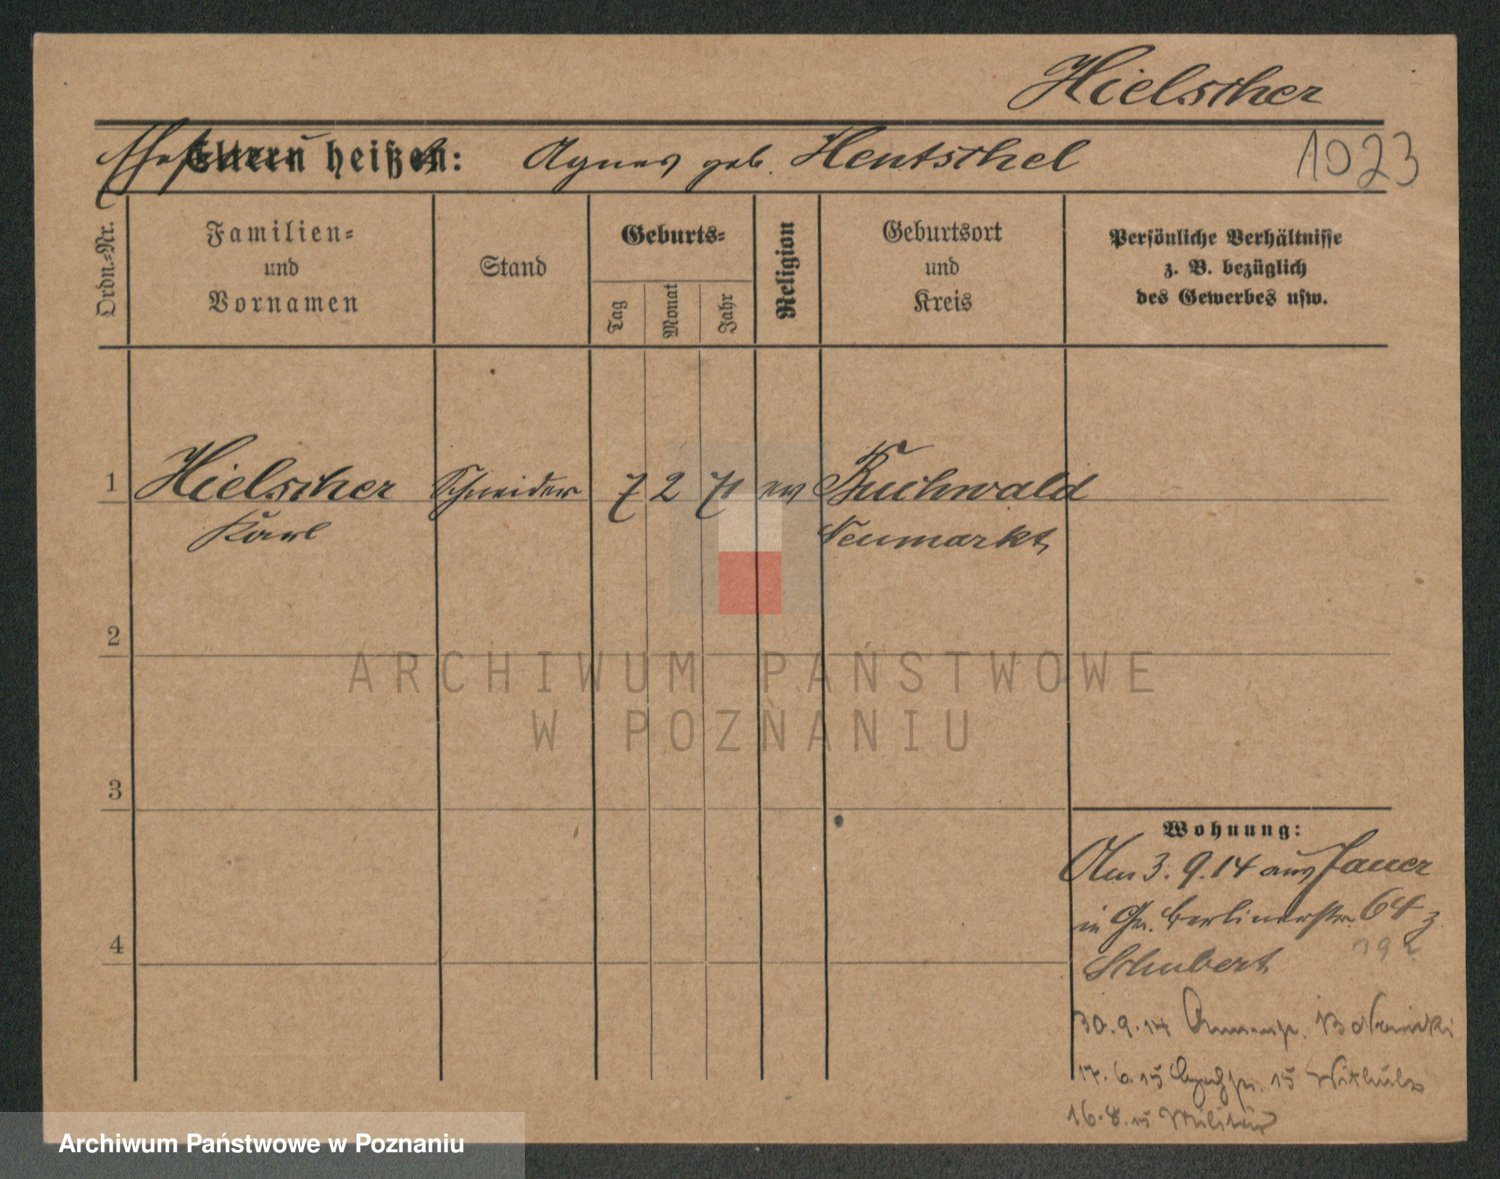 Hielscher
Ehefrau
Eltern heißen: Agnes geb. Hentschel
1023
Ordn.-Nr.
Familien-
und
Vornamen
Stand
Geburts-
Tag
Monat
Jahr
Religion
Geburtsort
und
Kreis
Persönliche Verhältnisse
z. B. bezüglich
des Gewerbes usw.
1 Hielscher Schneider 7 2 71 ev Buchwald
Karl Neumarkt
2
ARCHIWUM PAŃSTWOWE
W POZNANIU
3
Wohnung:
Am 3. 9. 14 aus Jauer
in Gn. Berlinerstr. 64 z
Schubert
4
30. 9. 14 13
17. 6. 15 15
16. 8. 15 Militär
Archiwum Państwowe w Poznaniu